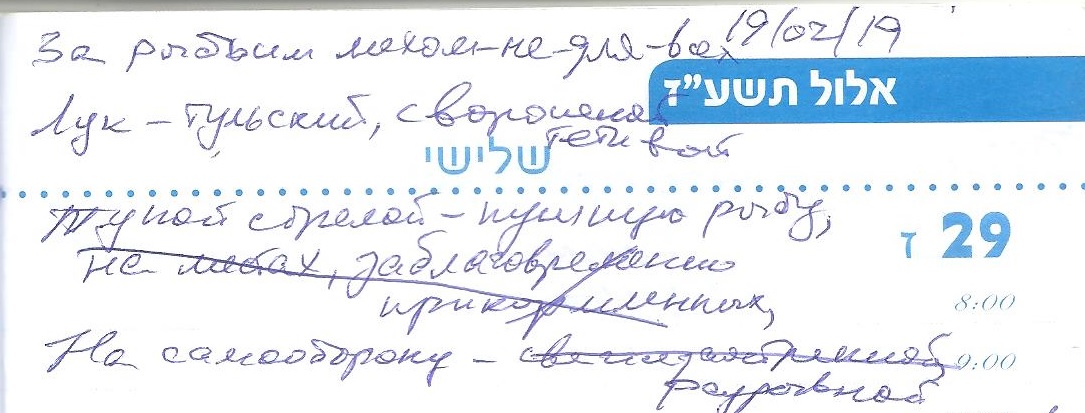 За рыбьим мехом-не-для-вах 19/02/19
אלול תשע"ז
Лук – тульский, с вороненой
тетивой
שלישי
Тупой стрелой – пушную рыбу,
на местах, заблаговременно
29 ז
прикормленных,
8:00
На самооборону –
9:00
разрывной